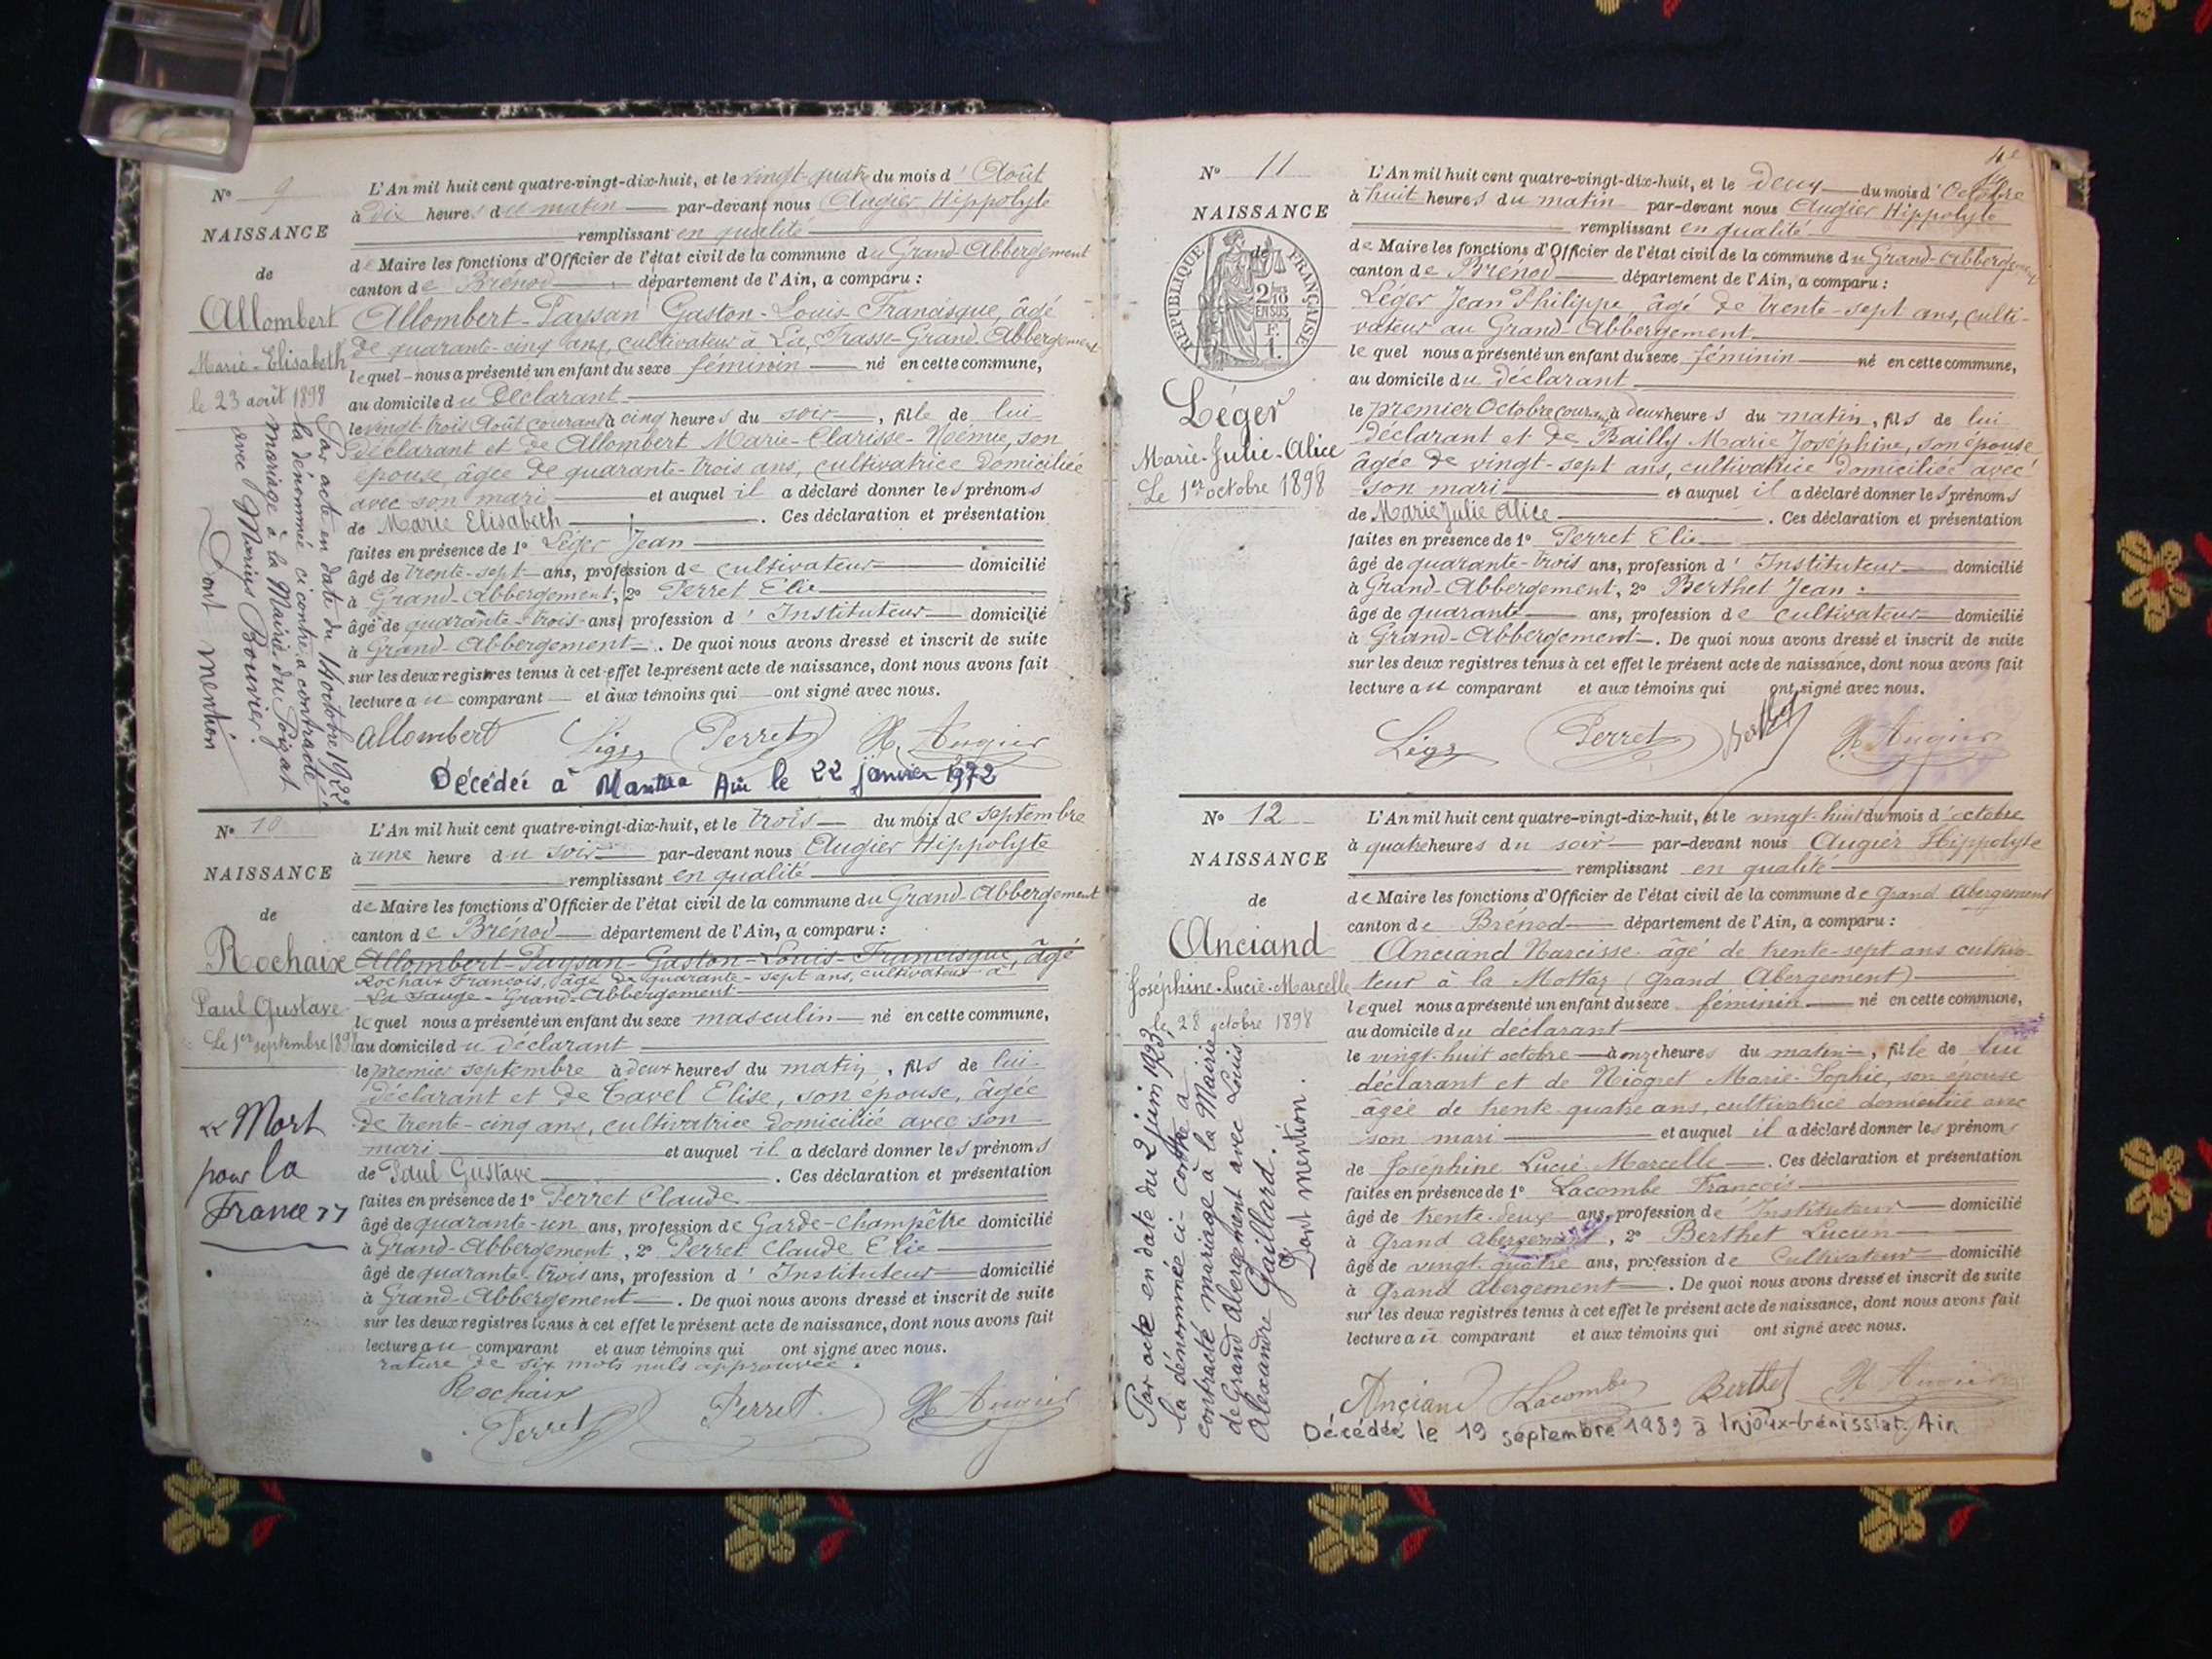 N° 9
NAISSANCE
de
Allombert
Marie-Elisabeth
le 23 août 1898
Par acte en date du 14 octobre 1922
la dénommée ci contre a contracté
mariage à la Mairie du Poizat
avec Marius Bouvier.
Dont mention
L'An mil huit cent quatre-vingt-dix-huit, et le vingt-quatre du mois d'Août
à dix heures du matin par-devant nous Augier Hippolyte
remplissant en qualité
de Maire les fonctions d'Officier de l'état civil de la commune du Grand-Abbergement
canton de Brénod département de l'Ain, a comparu :
Allombert-Paysan Gaston-Louis-Francisque, âgé
de quarante-cinq ans, cultivateur à La Grand-Abbergement
lequel nous a présenté un enfant du sexe féminin né en cette commune,
au domicile du Déclarant
le vingt-trois Août courant à cinq heures du soir, fille de lui
déclarant et de Allombert Marie-Clarisse-Noémie, son
épouse, âgée de quarante-trois ans, cultivatrice domiciliée
avec son mari et auquel il a déclaré donner les prénoms
de Marie Elisabeth. Ces déclaration et présentation
faites en présence de 1° Léger Jean
âgé de trente-sept ans, profession de cultivateur domicilié
à Grand-Abbergement, 2° Perret Elie
âgé de quarante-trois ans, profession d'Instituteur domicilié
à Grand-Abbergement. De quoi nous avons dressé et inscrit de suite
sur les deux registres tenus à cet effet le présent acte de naissance, dont nous avons fait
lecture au comparant et aux témoins qui ont signé avec nous.
Allombert Léger Perret H. Augier
Décédée à Ain le 22 janvier 1972
N° 10
NAISSANCE
de
Rochaix
Paul Gustave
Le 1er septembre 1898
« Mort
pour la
France »
L'An mil huit cent quatre-vingt-dix-huit, et le trois du mois de septembre
à une heure du soir par-devant nous Augier Hippolyte
remplissant en qualité
de Maire les fonctions d'Officier de l'état civil de la commune du Grand-Abbergement
canton de Brénod département de l'Ain, a comparu :
Allombert-Paysan-Gaston-Louis-Francisque, âgé
Rochaix François, âgé de quarante-sept ans, cultivateur à
Grand-Abbergement
lequel nous a présenté un enfant du sexe masculin né en cette commune,
au domicile du déclarant
le premier septembre à deux heures du matin, fils de lui
déclarant et de Tavel Elise, son épouse, âgée
de trente-cinq ans, cultivatrice domiciliée avec son
mari et auquel il a déclaré donner les prénoms
de Paul Gustave. Ces déclaration et présentation
faites en présence de 1° Perret Claude
âgé de quarante-un ans, profession de Garde-Champêtre domicilié
à Grand-Abbergement, 2° Perret Claude Elie
âgé de quarante-trois ans, profession d'Instituteur domicilié
à Grand-Abbergement. De quoi nous avons dressé et inscrit de suite
sur les deux registres tenus à cet effet le présent acte de naissance, dont nous avons fait
lecture au comparant et aux témoins qui ont signé avec nous.
rature de six mots nuls approuvée.
Rochaix
Perret Perret. H. Augier
4e
N° 11
NAISSANCE
de
RÉPUBLIQUE FRANÇAISE
2/10
EN SUS
F.
1.
Léger
Marie-Julie-Alice
Le 1er octobre 1898
L'An mil huit cent quatre-vingt-dix-huit, et le deux du mois d'Octobre
à huit heures du matin par-devant nous Augier Hippolyte
remplissant en qualité
de Maire les fonctions d'Officier de l'état civil de la commune du Grand-Abbergement
canton de Brénod département de l'Ain, a comparu :
Léger Jean Philippe âgé de trente-sept ans, culti-
vateur au Grand-Abbergement
lequel nous a présenté un enfant du sexe féminin né en cette commune,
au domicile du déclarant
le premier Octobre courant à deux heures du matin, fils de lui
déclarant et de Bailly Marie Joséphine, son épouse
âgée de vingt-sept ans, cultivatrice domiciliée avec
son mari et auquel il a déclaré donner les prénoms
de Marie Julie Alice. Ces déclaration et présentation
faites en présence de 1° Perret Elie
âgé de quarante-trois ans, profession d'Instituteur domicilié
à Grand-Abbergement, 2° Berthet Jean
âgé de quarante ans, profession de cultivateur domicilié
à Grand-Abbergement. De quoi nous avons dressé et inscrit de suite
sur les deux registres tenus à cet effet le présent acte de naissance, dont nous avons fait
lecture au comparant et aux témoins qui ont signé avec nous.
Léger Perret Berthet H. Augier
N° 12
NAISSANCE
de
Anciand
Joséphine-Lucie-Marcelle
le 28 octobre 1898
Par acte en date du 2 juin 1923
la dénommée ci-contre a
contracté mariage à la Mairie
de Grand Abergement avec Louis
Alexandre Gaillard.
Dont mention.
L'An mil huit cent quatre-vingt-dix-huit, et le vingt-huit du mois d'octobre
à quatre heures du soir par-devant nous Augier Hippolyte
remplissant en qualité
de Maire les fonctions d'Officier de l'état civil de la commune de Grand Abergement
canton de Brénod département de l'Ain, a comparu :
Anciand Narcisse âgé de trente-sept ans cultiva-
teur à la Mottaz (Grand Abergement)
lequel nous a présenté un enfant du sexe féminin né en cette commune,
au domicile du déclarant
le vingt-huit octobre à onze heures du matin, fille de lui
déclarant et de Niogret Marie-Sophie, son épouse
âgée de trente quatre ans, cultivatrice domiciliée avec
son mari et auquel il a déclaré donner les prénoms
de Joséphine Lucie Marcelle. Ces déclaration et présentation
faites en présence de 1° Lacombe François
âgé de trente-deux ans, profession de Instituteur domicilié
à Grand Abergement, 2° Berthet Lucien
âgé de vingt-quatre ans, profession de Cultivateur domicilié
à Grand Abergement. De quoi nous avons dressé et inscrit de suite
sur les deux registres tenus à cet effet le présent acte de naissance, dont nous avons fait
lecture au comparant et aux témoins qui ont signé avec nous.
Anciand Lacombe Berthet H. Augier
Décédée le 19 septembre 1989 à Injoux-Génissiat. Ain